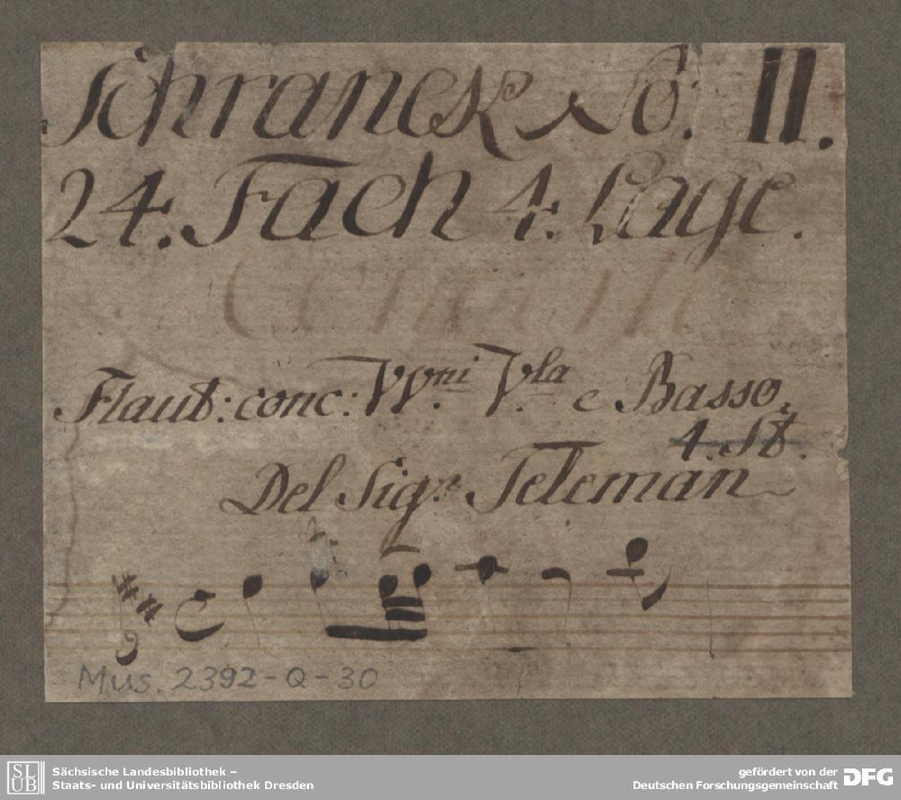 Schranck No: II.
24. Fach 4. Lage.
Flaut: conc: VV.ni V.la e Basso,
4. St.
Del Sigr. Teleman
Mus. 2392-Q-30
SLUB
Sächsische Landesbibliothek –
Staats- und Universitätsbibliothek Dresden
gefördert von der
Deutschen Forschungsgemeinschaft
DFG